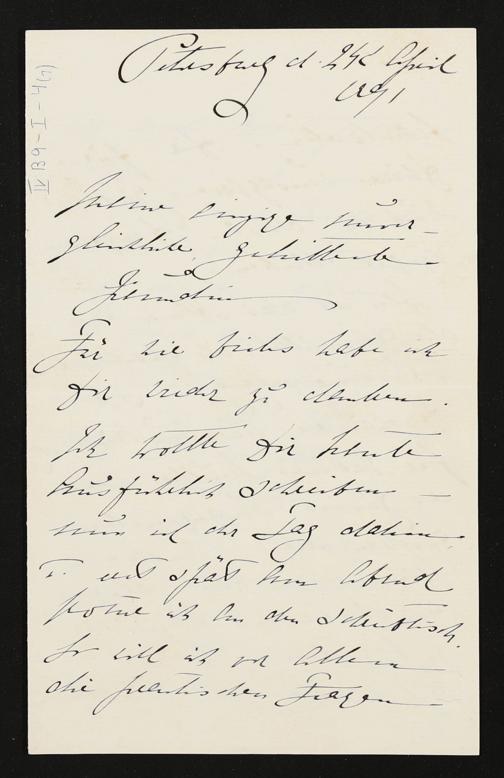 Petersburg d. 24 April
1891
IV B9-I-4(7)
Meine einzige unver-
gleichliche, geliebteste
Freundin
Für wie vieles habe ich
Dir wieder zu danken.
Ich wollte Dir heute
ausführlich schreiben –
nun ist der Tag dahin
u. erst spät am Abend
komme ich an den Schreibtisch.
So will ich vor allem
die praktischen Fragen